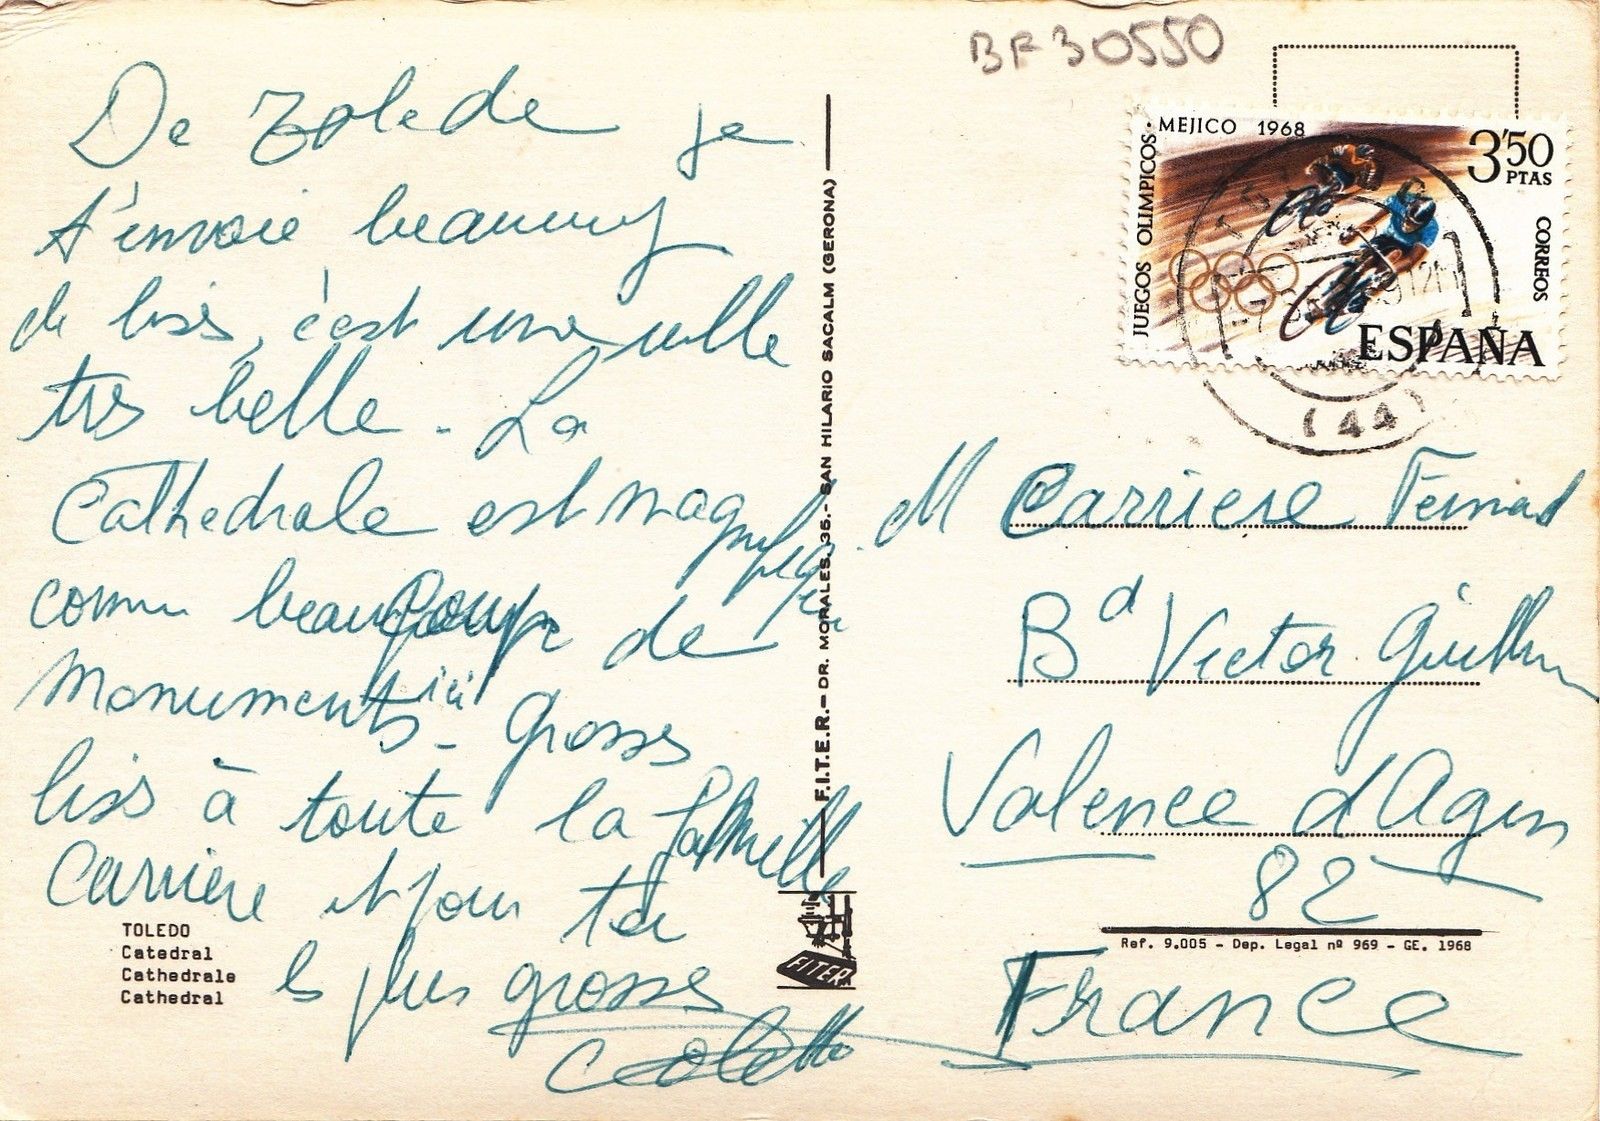 BF30550
De Tolede je
t'envoie beaucoup
de bises, c'est une ville
très belle - La
Cathedrale est magnifique
comme beaucoup de
monuments ici - Grosses
bises à toute la famille
Carriere et pour toi
les plus grosses
Colette
TOLEDO
Catedral
Cathedrale
Cathedral
F.I.T.E.R.-DR. MORALES, 35.-SAN HILARIO SACALM (GERONA)
FITER
JUEGOS OLIMPICOS·MEJICO 1968
3'50
PTAS
CORREOS
ESPAÑA
12M
(44)
M Carriere Fernand
Bd Victor Guilhem
Valence d'Agen
82
Ref. 9.005 - Dep. Legal nº 969 - GE. 1968
France